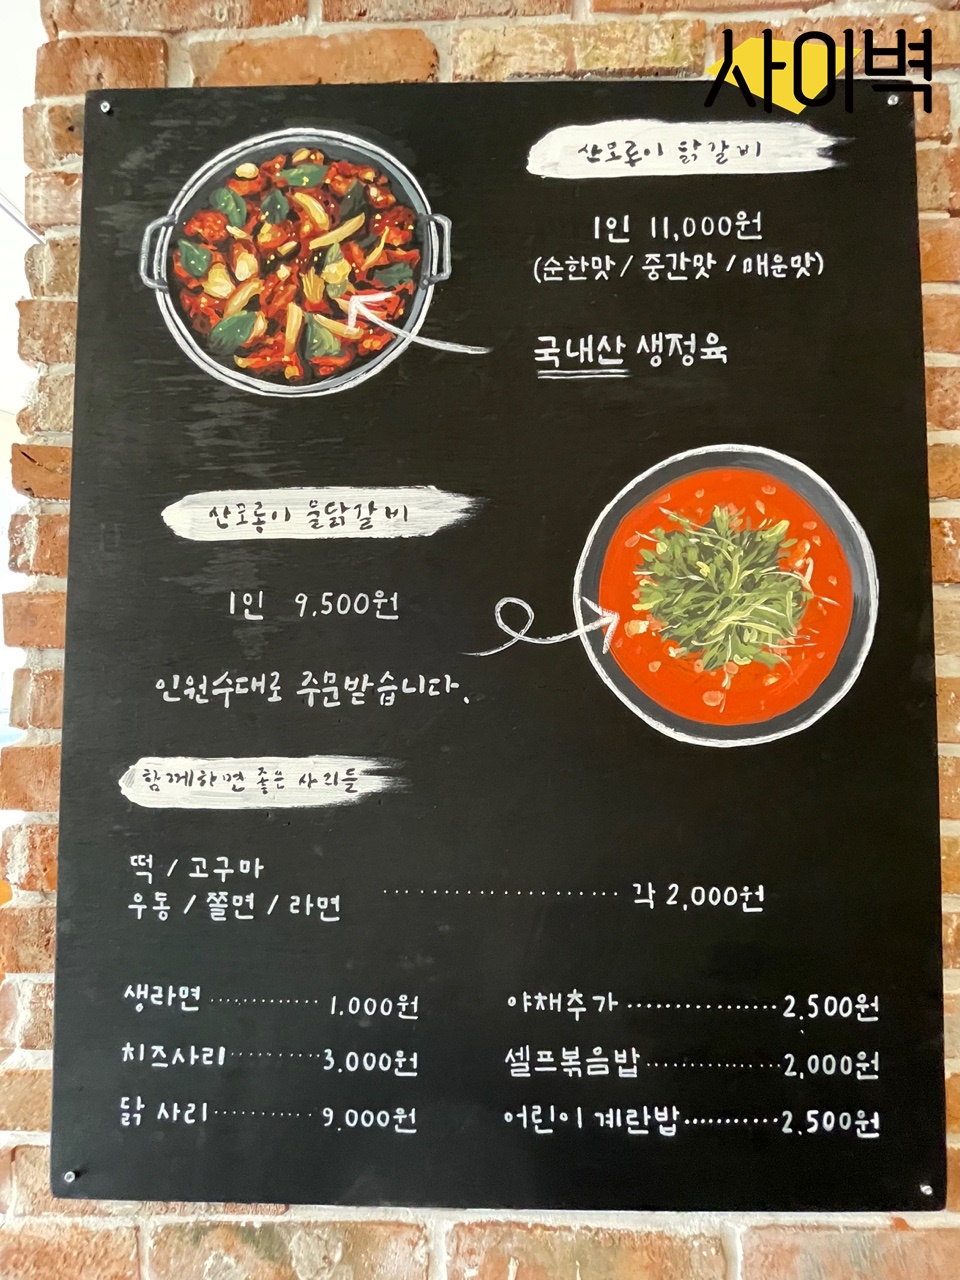 사이벽
산모롱이 닭갈비
1인 11,000원
(순한맛 / 중간맛 / 매운맛)
국내산 생정육
산모롱이 물닭갈비
1인 9,500원
인원수대로 주문받습니다.
함께하면 좋은 사리들
떡 / 고구마
우동 / 쫄면 / 라면 ........................ 각 2,000원
생라면 ............. 1,000원
치즈사리 .......... 3,000원
닭 사리 ........... 9,000원
야채추가 ................. 2,500원
셀프볶음밥 ............... 2,000원
어린이 계란밥 ........... 2,500원